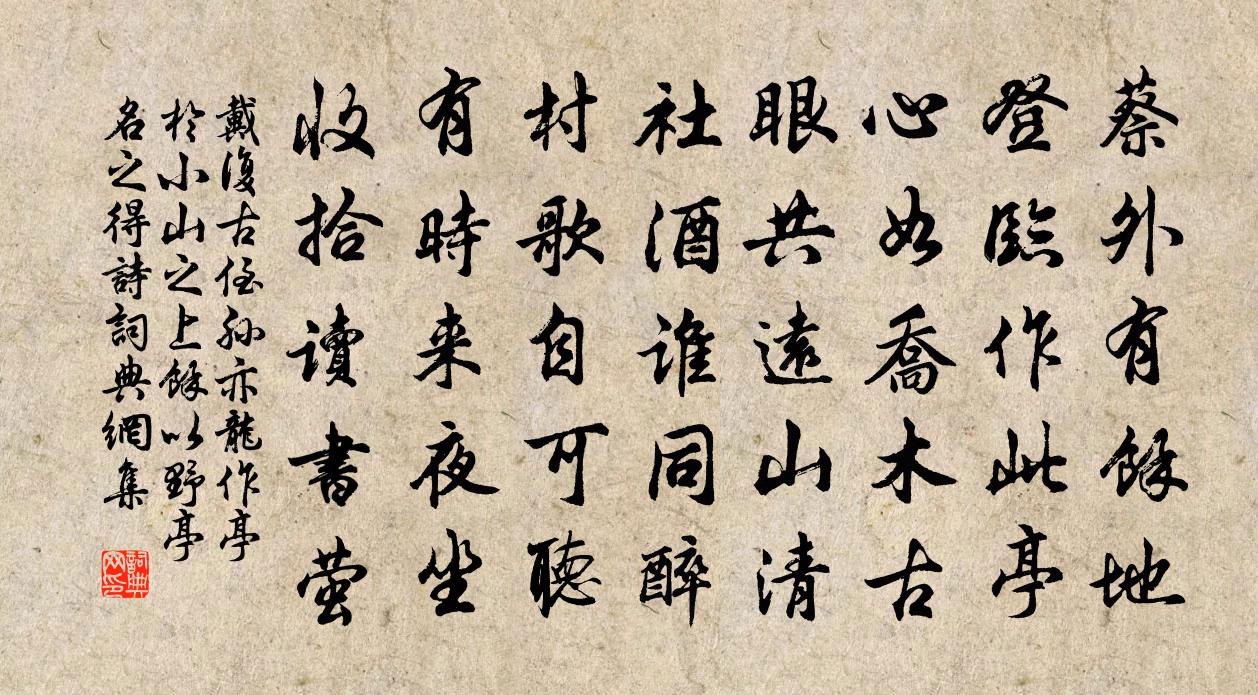 蔡外有餘地
登臨作此亭
心如喬木古
眼共遠山清
社酒誰同醉
村歌自可聽
有時来夜坐
收拾讀書萤
戴復古侄孙亦龍作亭
於小山之上餘以野亭
名之得詩詞典網集
詞典
网印